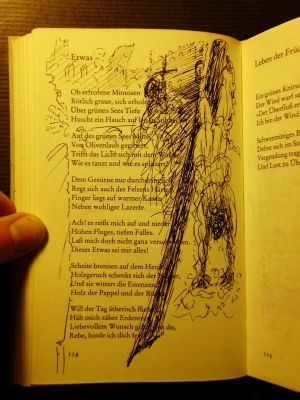 Etwas
Ob erfrorene Mimosen
Rötlich graue, sich erhol
Über grünen Sees Tiefe
Huscht ein Hauch auf
Auf des grünen Sees
Von Olivenlaub gegeben,
Trifft das Licht sich mit dem
Wie es tanzt und wie es
Dem Gestirne nur durchdringlich
Regt sich auch des Felsens Härte
Finger liegt auf warmer Kante
Neben wohliger Lazerte.
Ach! es reißt mich auf und nieder
Hohen Fluges, tiefen Falles.
Laß mich doch nicht ganz versch
Dieses Etwas sei mir alles!
Scheite brennen auf dem Herd
Holzgeruch schenkt sich der
Und sie wittert die Essenzen
Holz der Pappel und der
Will der Tag ätherisch
Hält mich zäher Erdenrest
Liebevollem Wunsch du,
Rebe, binde ich dich
114
Leben der Frü
Ein grünes Knirs
Der Wind warf s
»Der Überfluß d
Ich bin der Wind
Schwermütiges
Dehnt sich im So
Vergeudung trag
Und Lust zu Üb
115